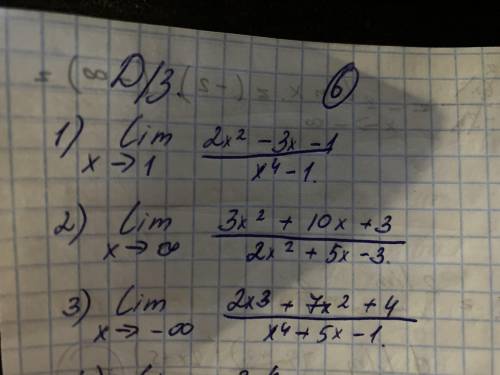 Д/З. 6
1) lim x → 1 (2x² - 3x - 1)/(x⁴ - 1.)
2) lim x → ∞ (3x² + 10x + 3)/(2x² + 5x - 3.)
3) lim x → -∞ (2x3 + 7x² + 4)/(x⁴ + 5x - 1.)